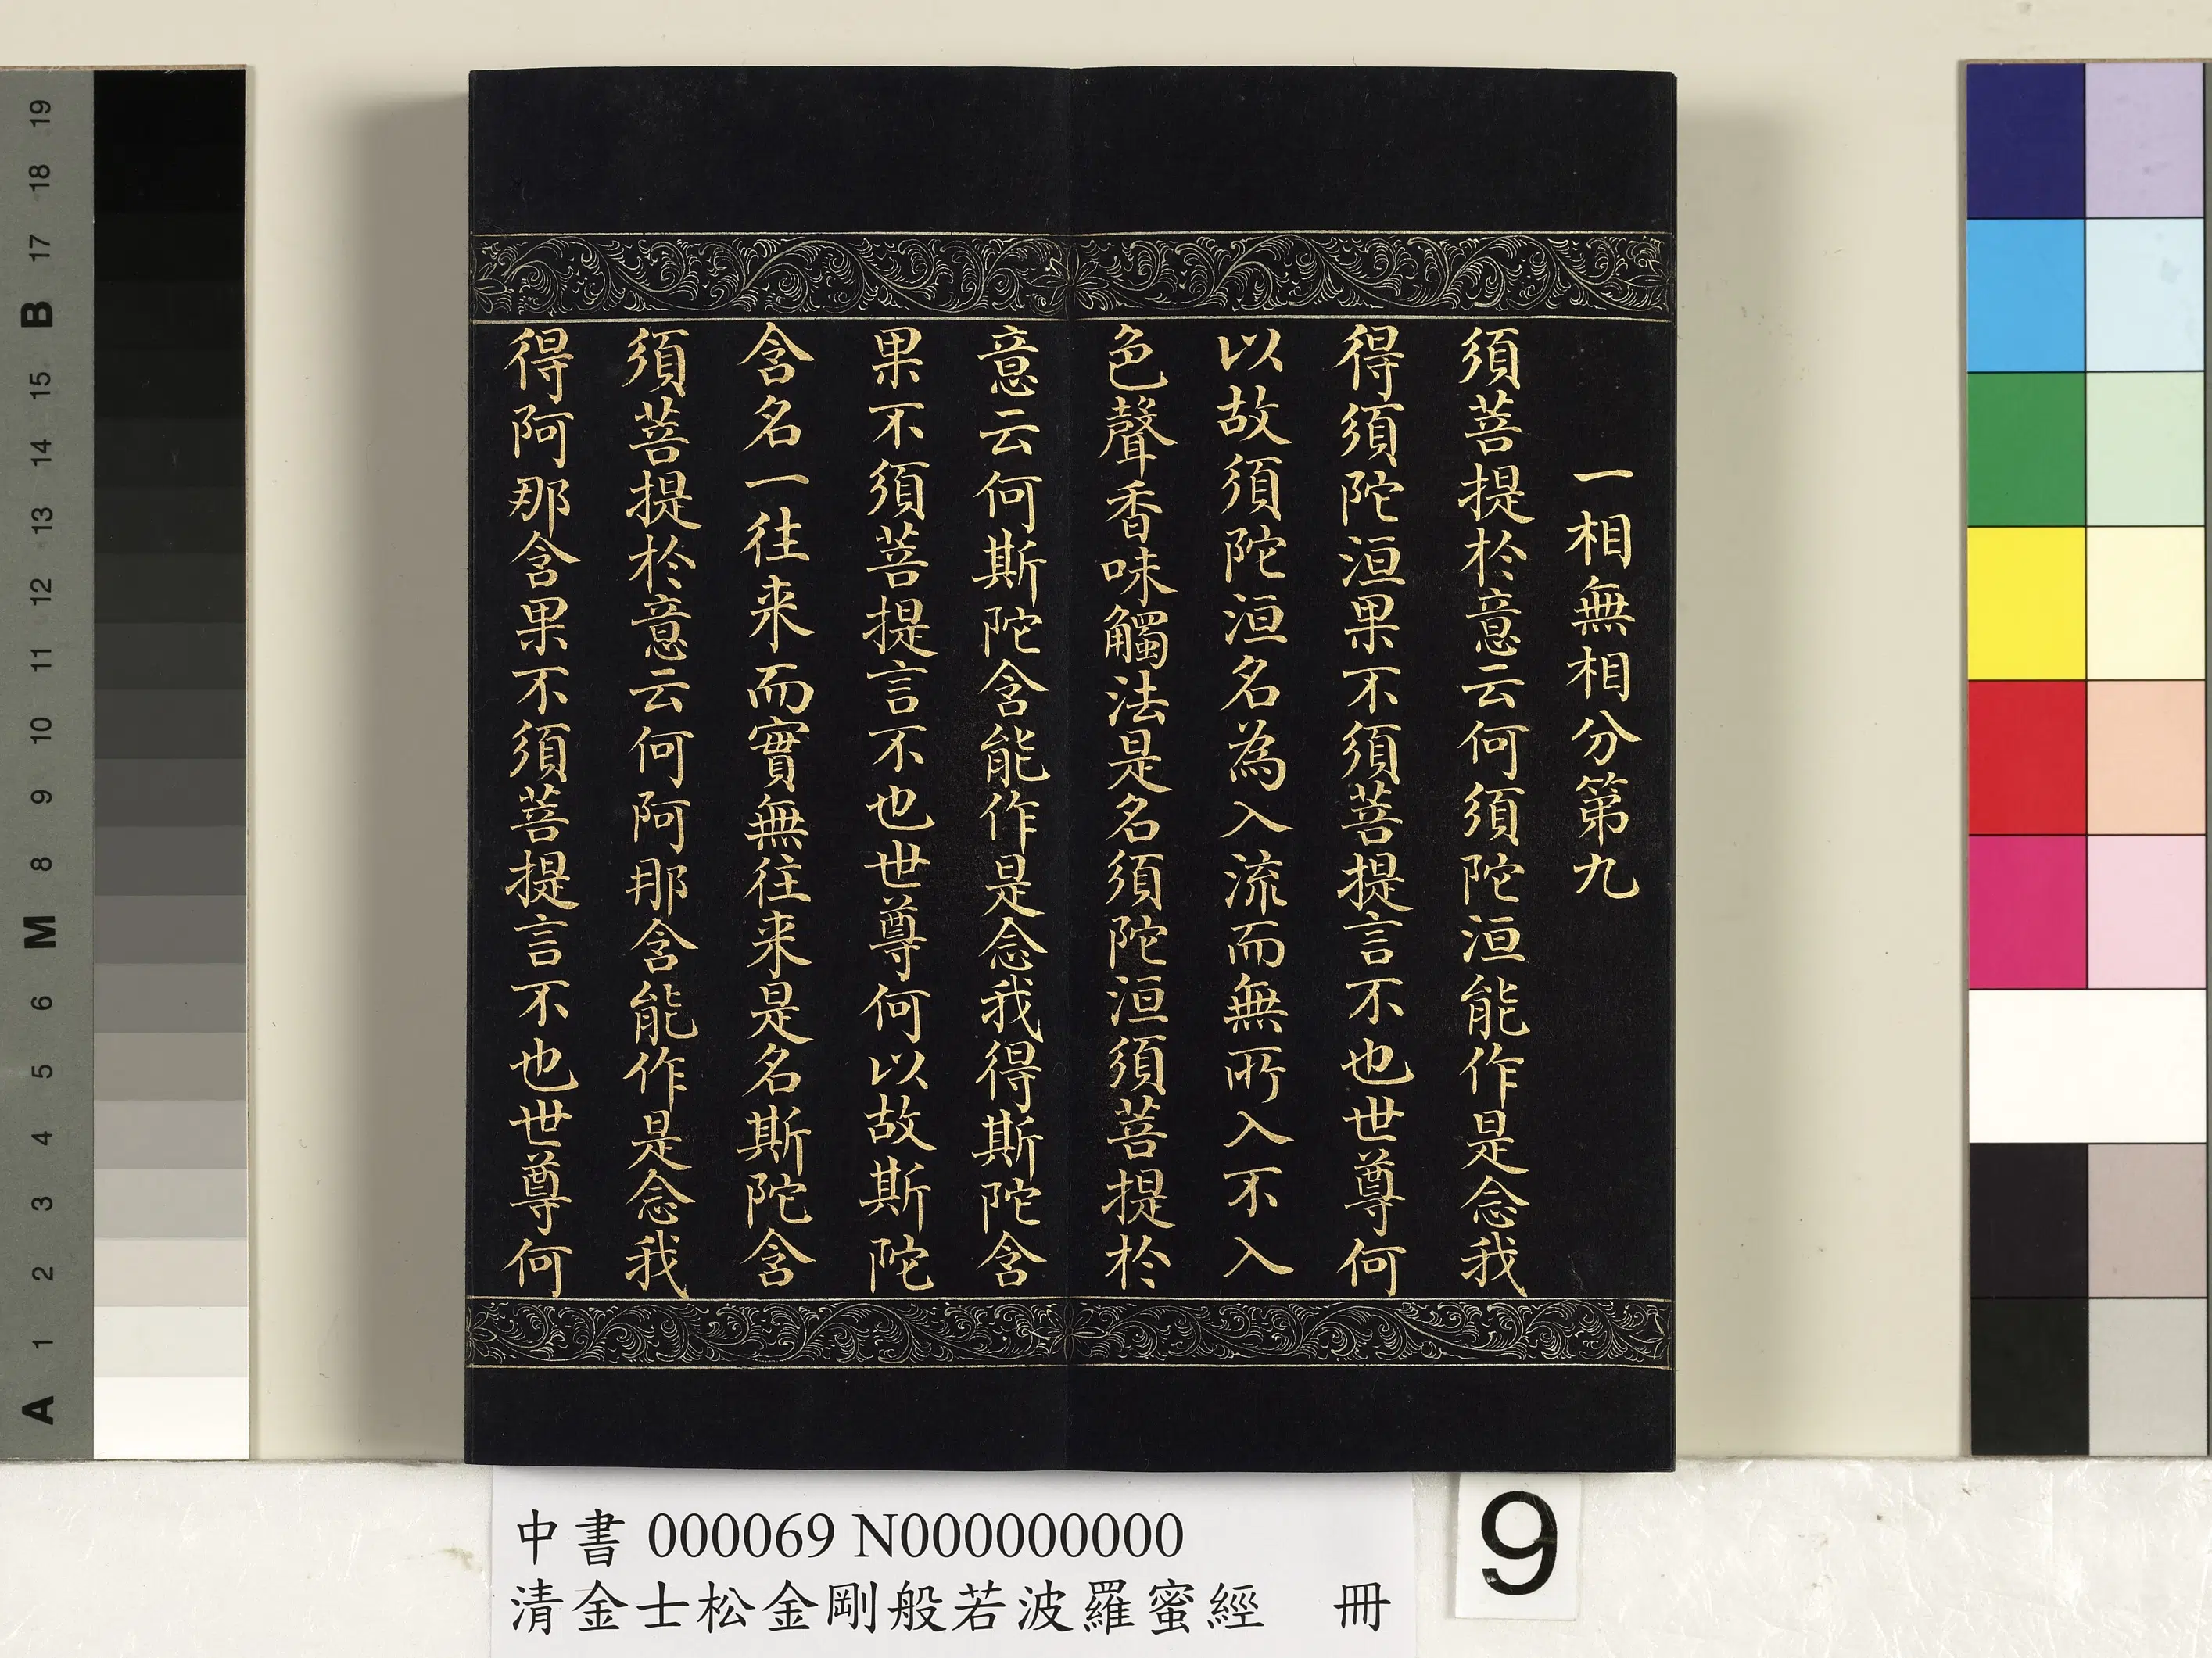 一相無相分第九
須菩提於意云何須陀洹能作是念我
得須陀洹果不須菩提言不也世尊何
以故須陀洹名為入流而無所入不入
色聲香味觸法是名須陀洹須菩提於
意云何斯陀含能作是念我得斯陀含
果不須菩提言不也世尊何以故斯陀
含名一往来而實無往来是名斯陀含
須菩提於意云何阿那含能作是念我
得阿那含果不須菩提言不也世尊何
中書 000069 N000000000
清金士松金剛般若波羅蜜經 冊
9
19
18
17
B
16
15
14
13
12
11
10
9
8
M
6
5
4
3
2
1
A